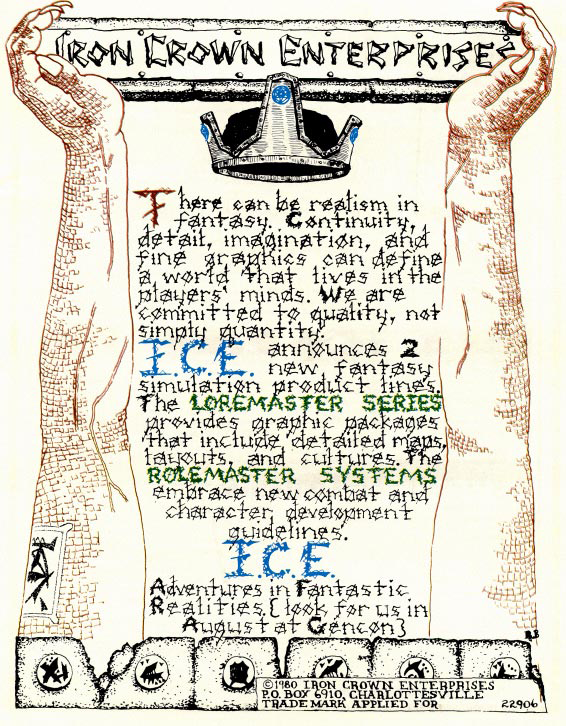 IRON CROWN ENTERPRISES
There can be realism in
fantasy. Continuity,
detail, imagination, and
fine graphics can define
a world that lives in the
players' minds. We are
committed to quality, not
simply quantity.
I.C.E. announces 2
new fantasy
simulation product lines.
The LOREMASTER SERIES
provides graphic packages
that include detailed maps,
layouts, and cultures. The
ROLEMASTER SYSTEMS
embrace new combat and
character development
guidelines.
I.C.E.
Adventures in Fantastic
Realities. [look for us in
August at Gencon]
©1980 IRON CROWN ENTERPRISES
P.O. BOX 6910, CHARLOTTESVILLE
TRADE MARK APPLIED FOR 22906